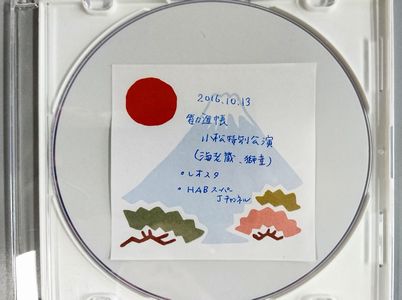 2016.10.13
勧進帳
小松特別公演
(海老蔵、獅童)
・レオスタ
・HABスーパー
Jチャンネル